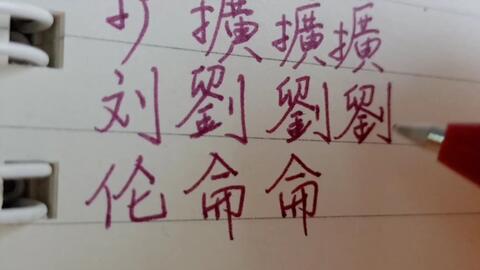 擴 擴 擴
刘 劉 劉 劉
伦 侖 侖